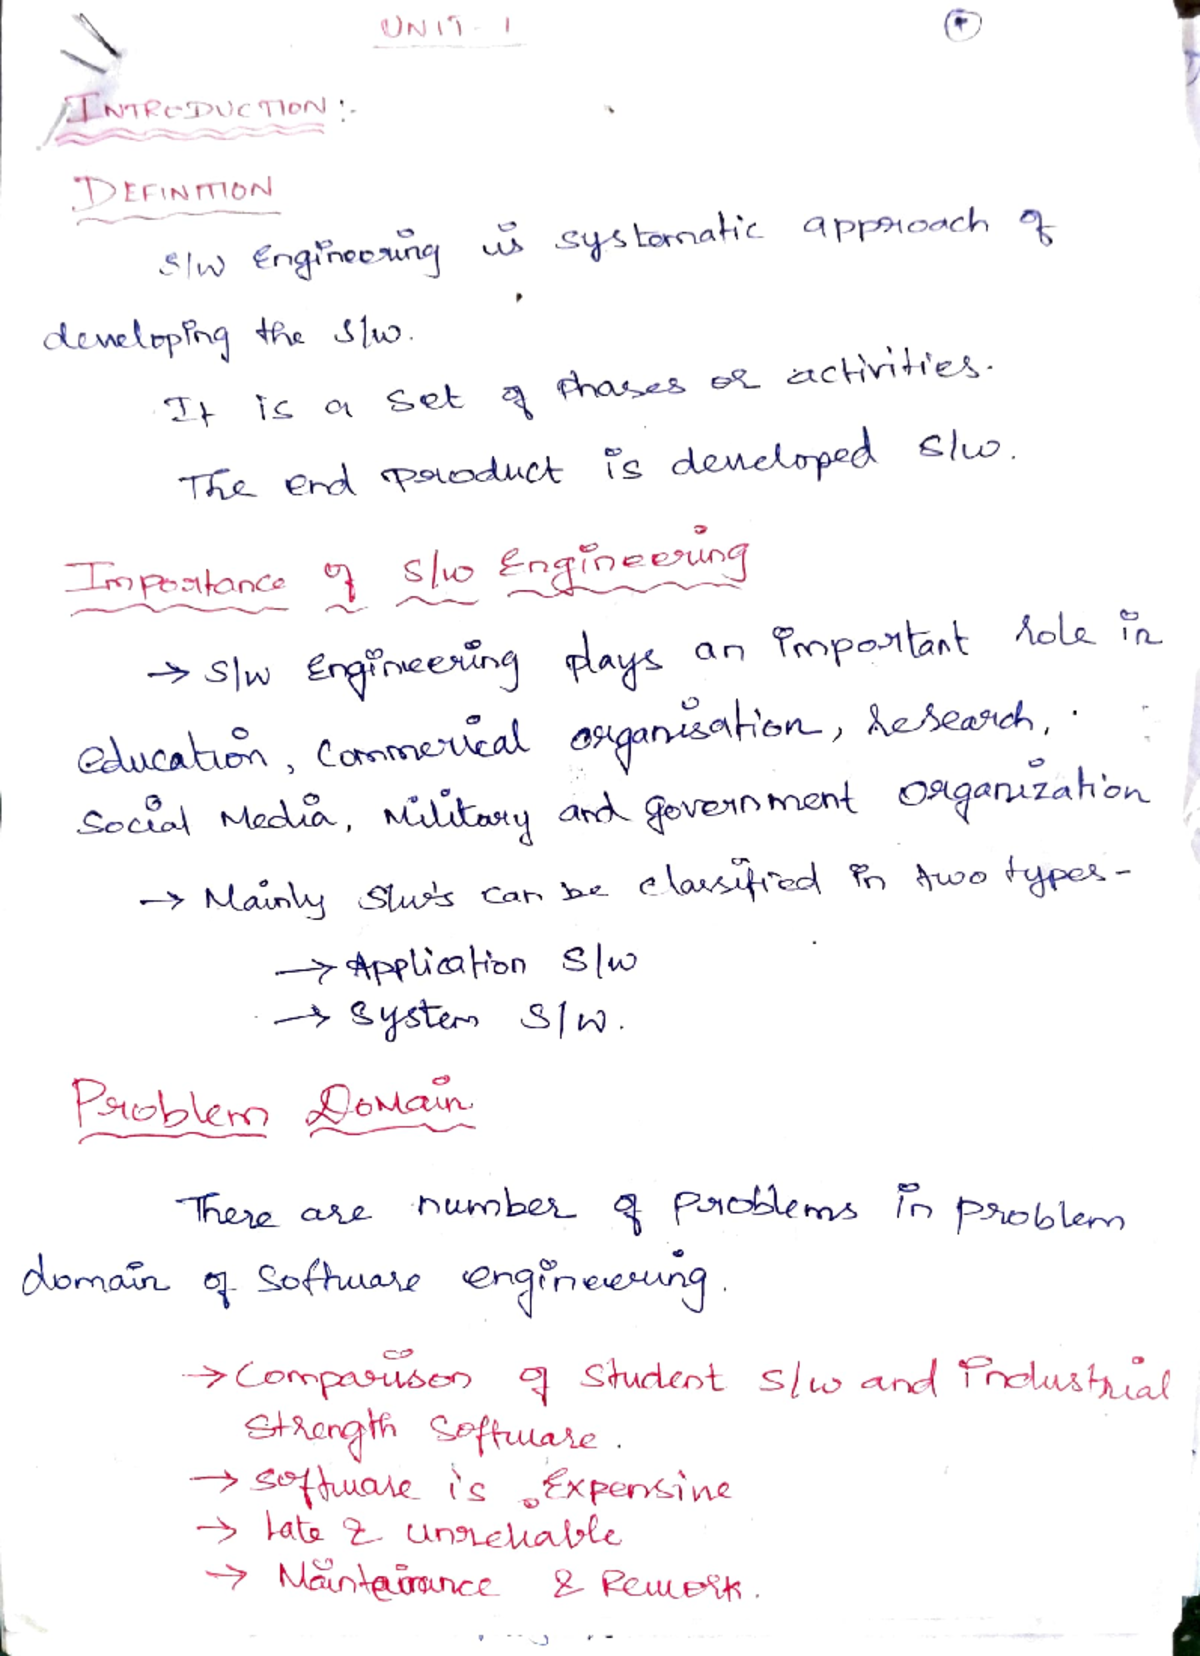 UNIT - 1
INTRODUCTION :-
DEFINITION
S/W Engineering is systematic approach of
developing the S/w.
It is a set of phases or activities.
The end product is developed S/w.
Importance of S/w Engineering
→ S/W Engineering plays an important role in
education, Commerical organisation, research,
Social Media, Military and government organization
→ Mainly S/w's can be classified in two types -
→ Application S/w
→ System S/w.
Problem Domain
There are number of problems in problem
domain of Software engineering.
→ Comparison of Student S/w and industrial
Strength Software.
→ Software is Expensive
→ Late & unreliable
→ Maintenance & Rework.